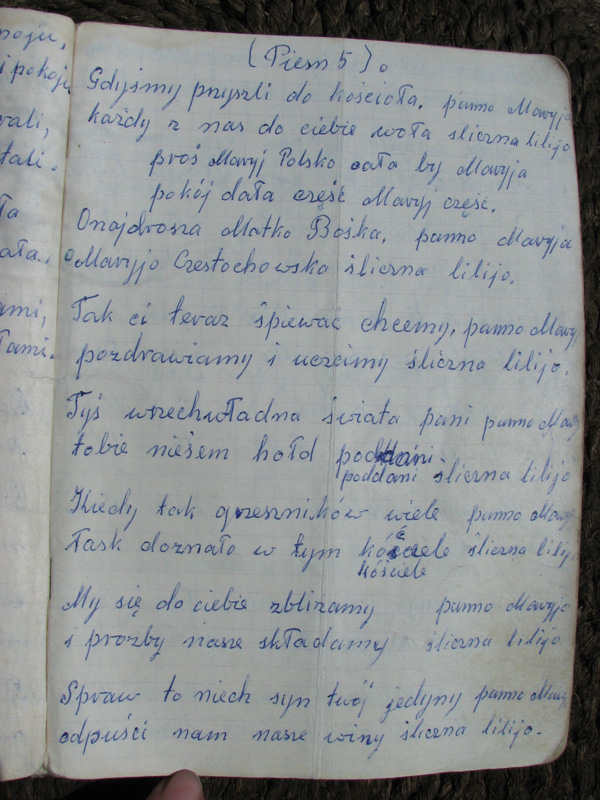 noju,
i pokoju
(Piesn 5).
Gdyśmy przyszli do kościoła, panno Maryjo
każdy z nas do ciebie woła śliczna lilijo
proś Maryj Polsko cała by Maryja
pokój dała część Maryj część.
Onajdrosza Matko Boska, panno Maryja
o Maryjo Czestochowska śliczna lilijo.
Tak ci teraz śpiewać chcemy, panno Mary
pozdrawiamy i uczcimy śliczna lilijo.
Tyś wszechwładna świata pani panno Mary
tobie niesem hołd poddani
poddani śliczna lilijo
Kiedy tak grzeszników wiele panno Mary
łask doznało w tym kościele śliczna lilij
kościele
My się do ciebie zblizamy panno Maryjo
i prozby nasze składamy śliczna lilijo
Spraw to niech syn twój jedyny panno Mary
odpuści nam nasze winy śliczna lilijo.